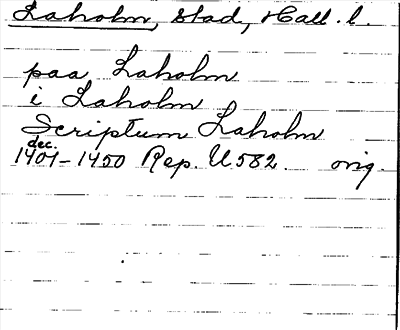 Laholm, stad, Hall. l.
paa Laholm
i Laholm
Scriptum Laholm
dec.
1401-1450 Rep. U 582. orig.